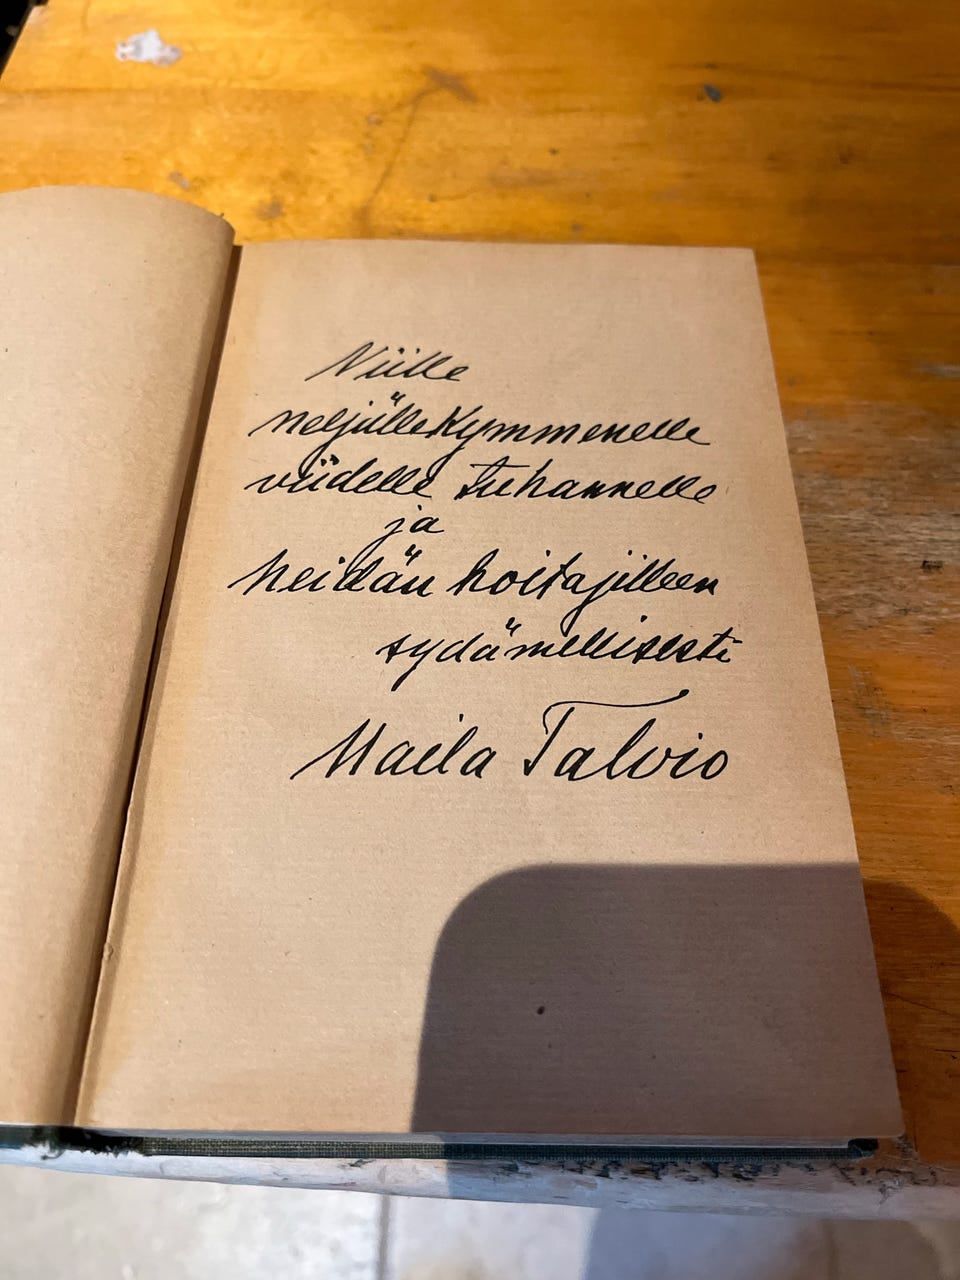 Niille
neljällekymmenelle
viidelle tuhannelle
ja
heidän hoitajilleen
sydämellisesti
Maila Talvio